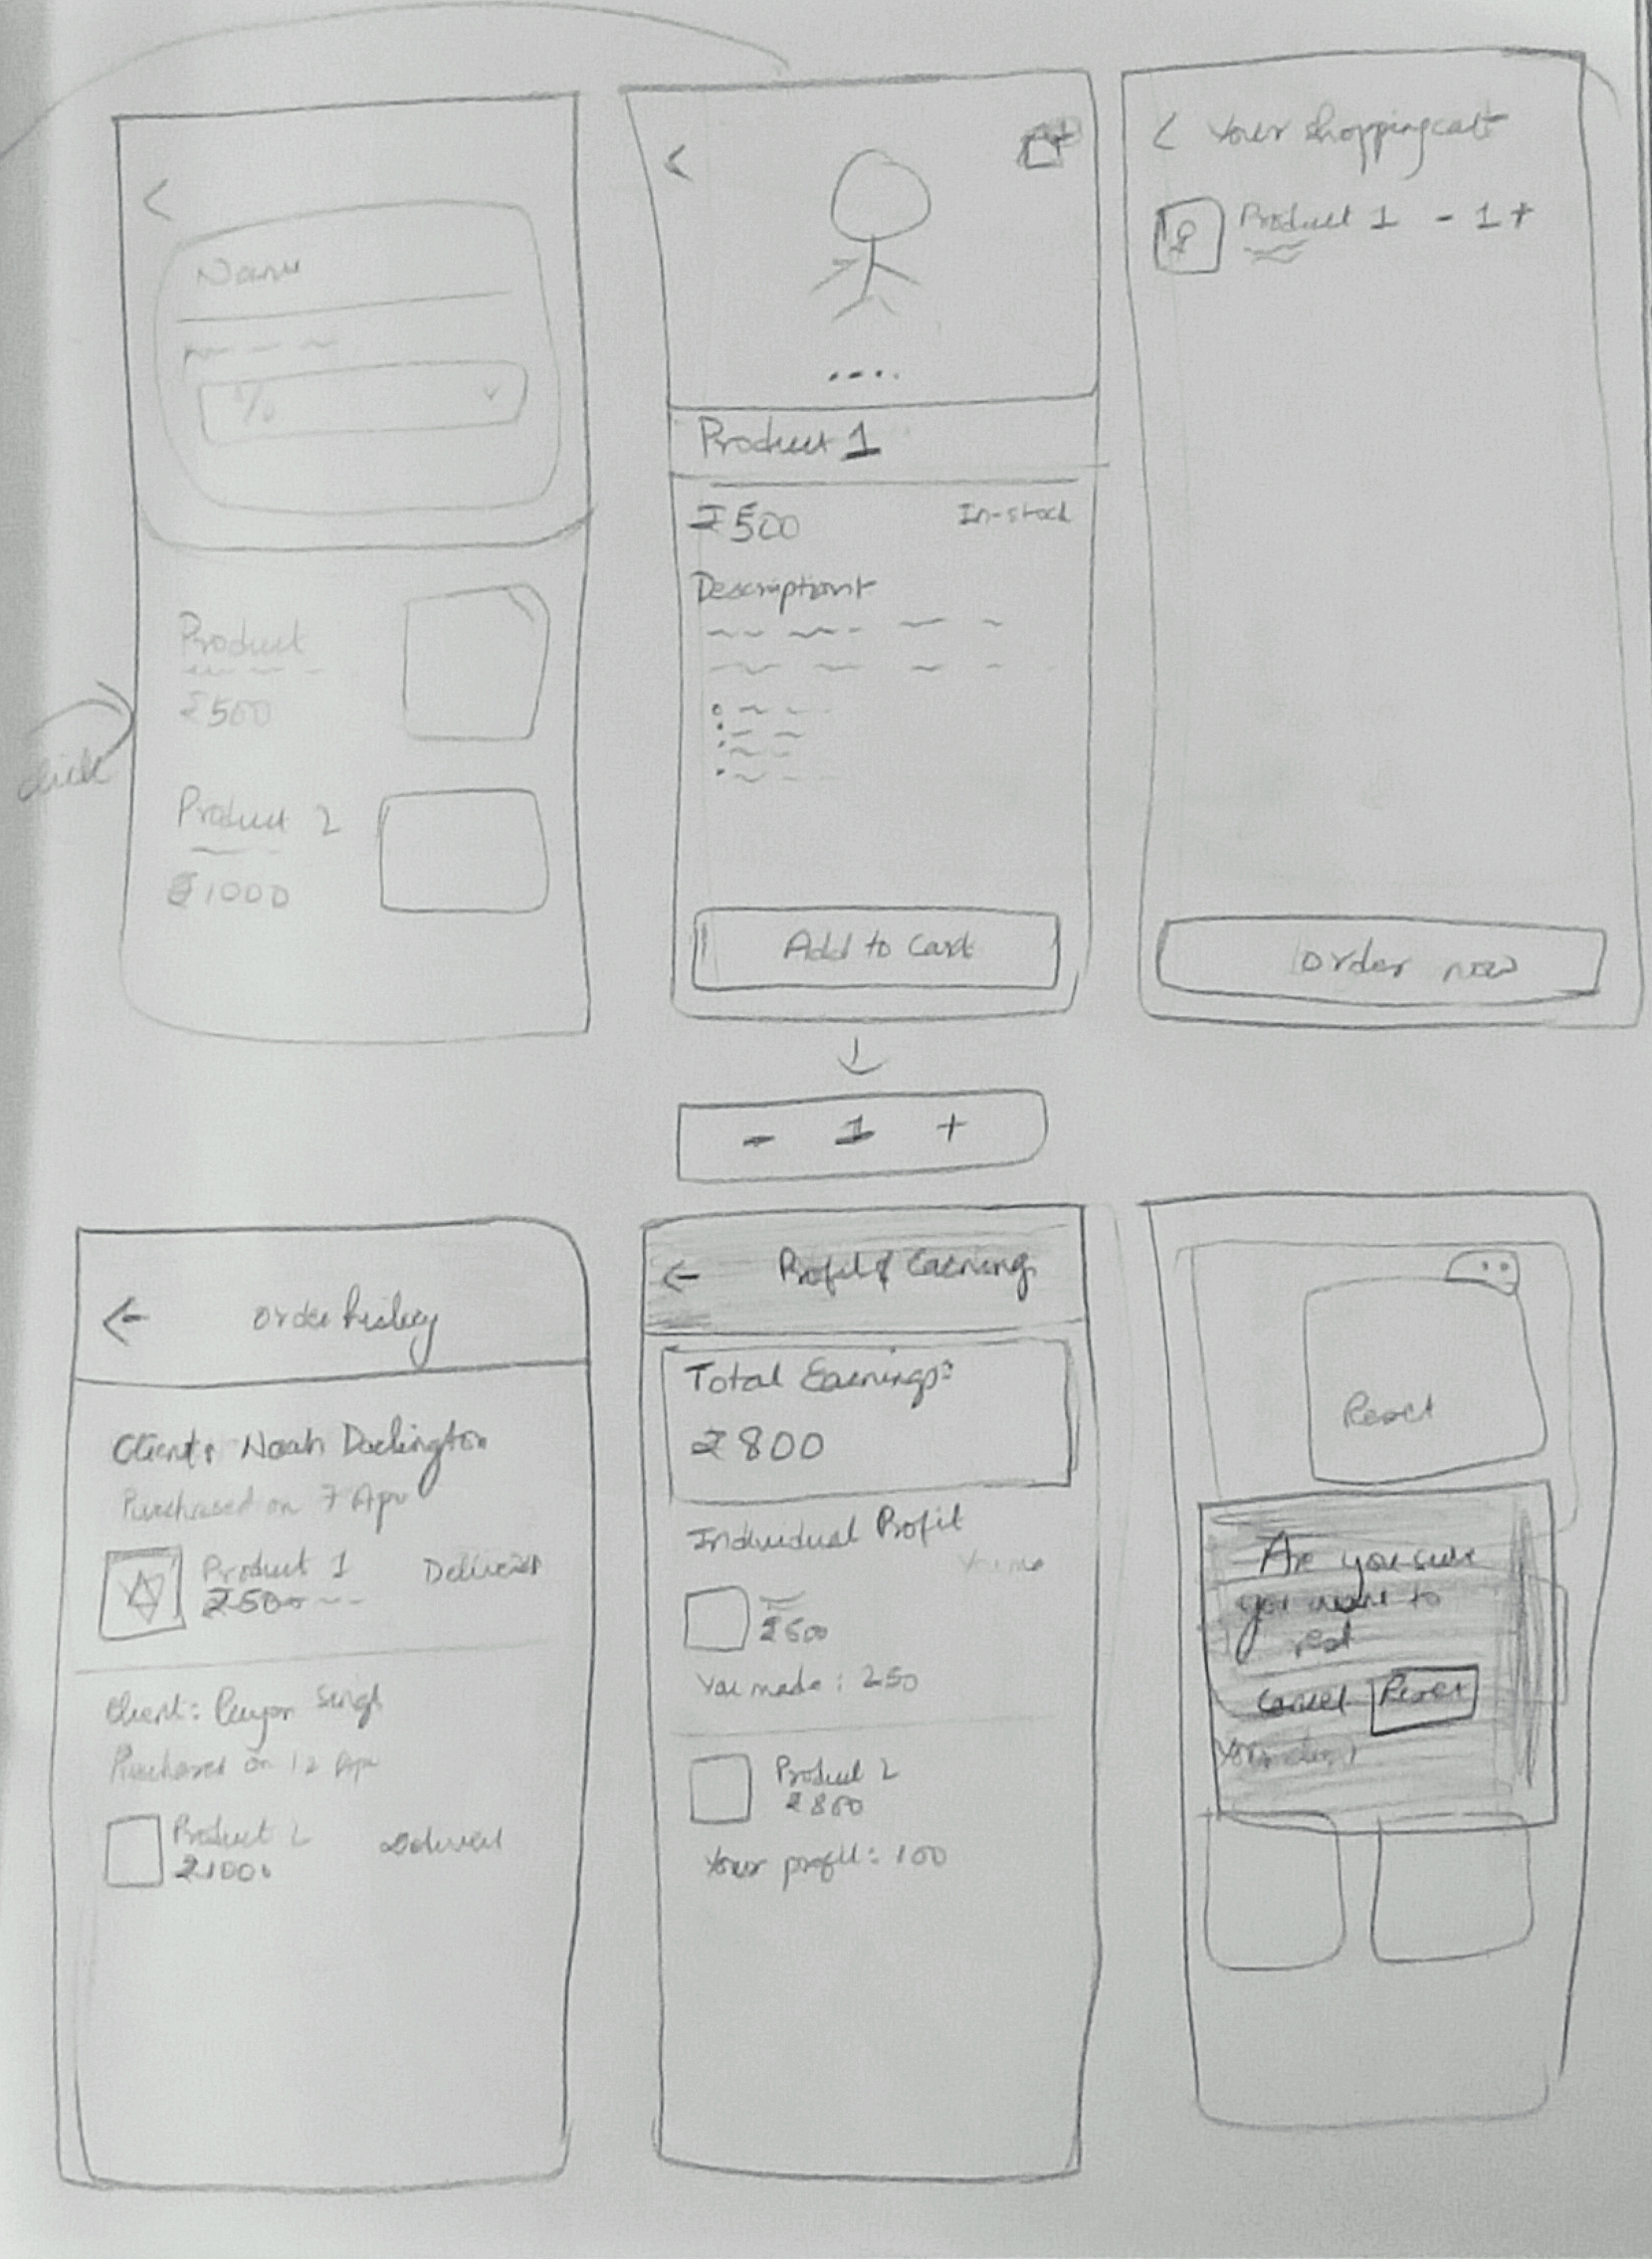 Name
%
Product
₹500
Product 2
₹1000
click
Product 1
₹500 In-stock
Description
Add to Cart
- 1 +
< Your shopping cart
Product 1 - 1 +
order now
← order history
Client: Noah Darlington
Purchased on 7 Apr
Product 1 Delivered
₹500
Client: Singh
Purchased on 12 Apr
Product 2 Delivered
₹1000
← Profit & Earnings
Total Earnings:
₹800
Individual Profit
₹500
You made: 250
Product 2
₹800
Your profit: 100
Reset
Are you sure
you want to
Cancel Reset